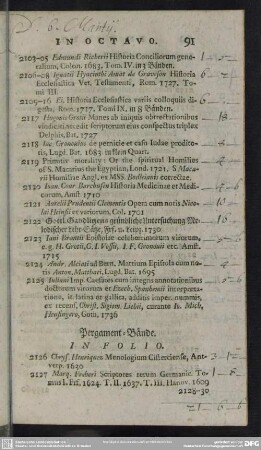 IN OCTAVO. 91
2103-05 Edmundi Richerii Historia Conciliorum gene-
ralium, Colon. 1683. Tom. IV. in 3 Bänden.
2106-08 Ignatii Hyacinthi Amat de Graveson Historia
Ecclesiastica Vet. Testamenti, Rom. 1727. To-
mi III.
2109-16 Ej. Historia Ecclesiastica variis colloquiis di-
gesta, Rom. 1717. Tomi IX. in 8 Bänden.
2117 Hugonis Grotii Manes ab iniquis obtrectationibus
vindicati, accedit scriptorum eius conspectus triplex
Delphis, Bat. 1727
2118 Iac. Gronovius de pernicie et casu Iudae prodito-
ris, Lugd. Bat. 1683 in klein Quart.
2119 Primitive morality: Or the spiritual Homilies
of S. Macarius the Egyptian, Lond. 1721. S Maca-
rii Homiliae Angl. ex MSS. Bodleianis correctae.
2120 Ioan. Conr. Barchusen Historia Medicinae et Medi-
corum, Amst. 1710
2121 Aurelii Prudentii Clementis Opera cum notis Nico-
lai Heinsii et variorum, Col. 1701
2122 Gottl. Gundlingens gründliche Untersuchung Me-
lodischer
2123 Iani Brantii Epistolae celeberrimorum virorum
e. g. H. Grotii, G. I. Vossii, I. F. Gronovii etc. Amst.
1715
2124 Andr. Alciati ad Bern. Mattium Epistola cum no-
tis Anton. Matthaei, Lugd. Bat. 1695
2125 Iuliani Imp. Caesares cum integris annotationibus
doctorum virorum et Ezech. Spanhemii interpreta-
tione, it. latina et gallica, additis imper. nummis,
ex recens. Christ. Sigism. Liebii, curante Io. Mich.
Heusingero, Goth. 1736
Pergament-Bände.
IN FOLIO.
2126 Chrys. Henriquez Menologium Cisterciense, Ant-
verp. 1630
2127 Marq. Freheri Scriptores rerum Germanic. To-
mus I. Frf. 1624. T. II. 1637. T. III. Hanov. 1609
2128-30